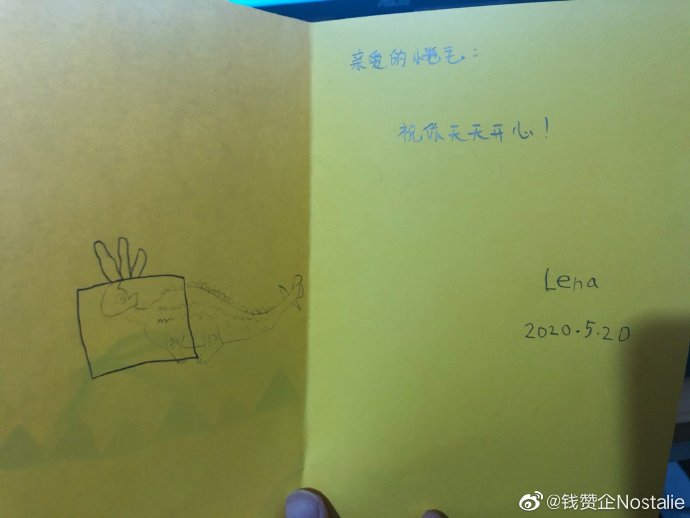 亲爱的小卷毛：
祝你天天开心！
Lena
2020.5.20
@钱赞企Nostalie